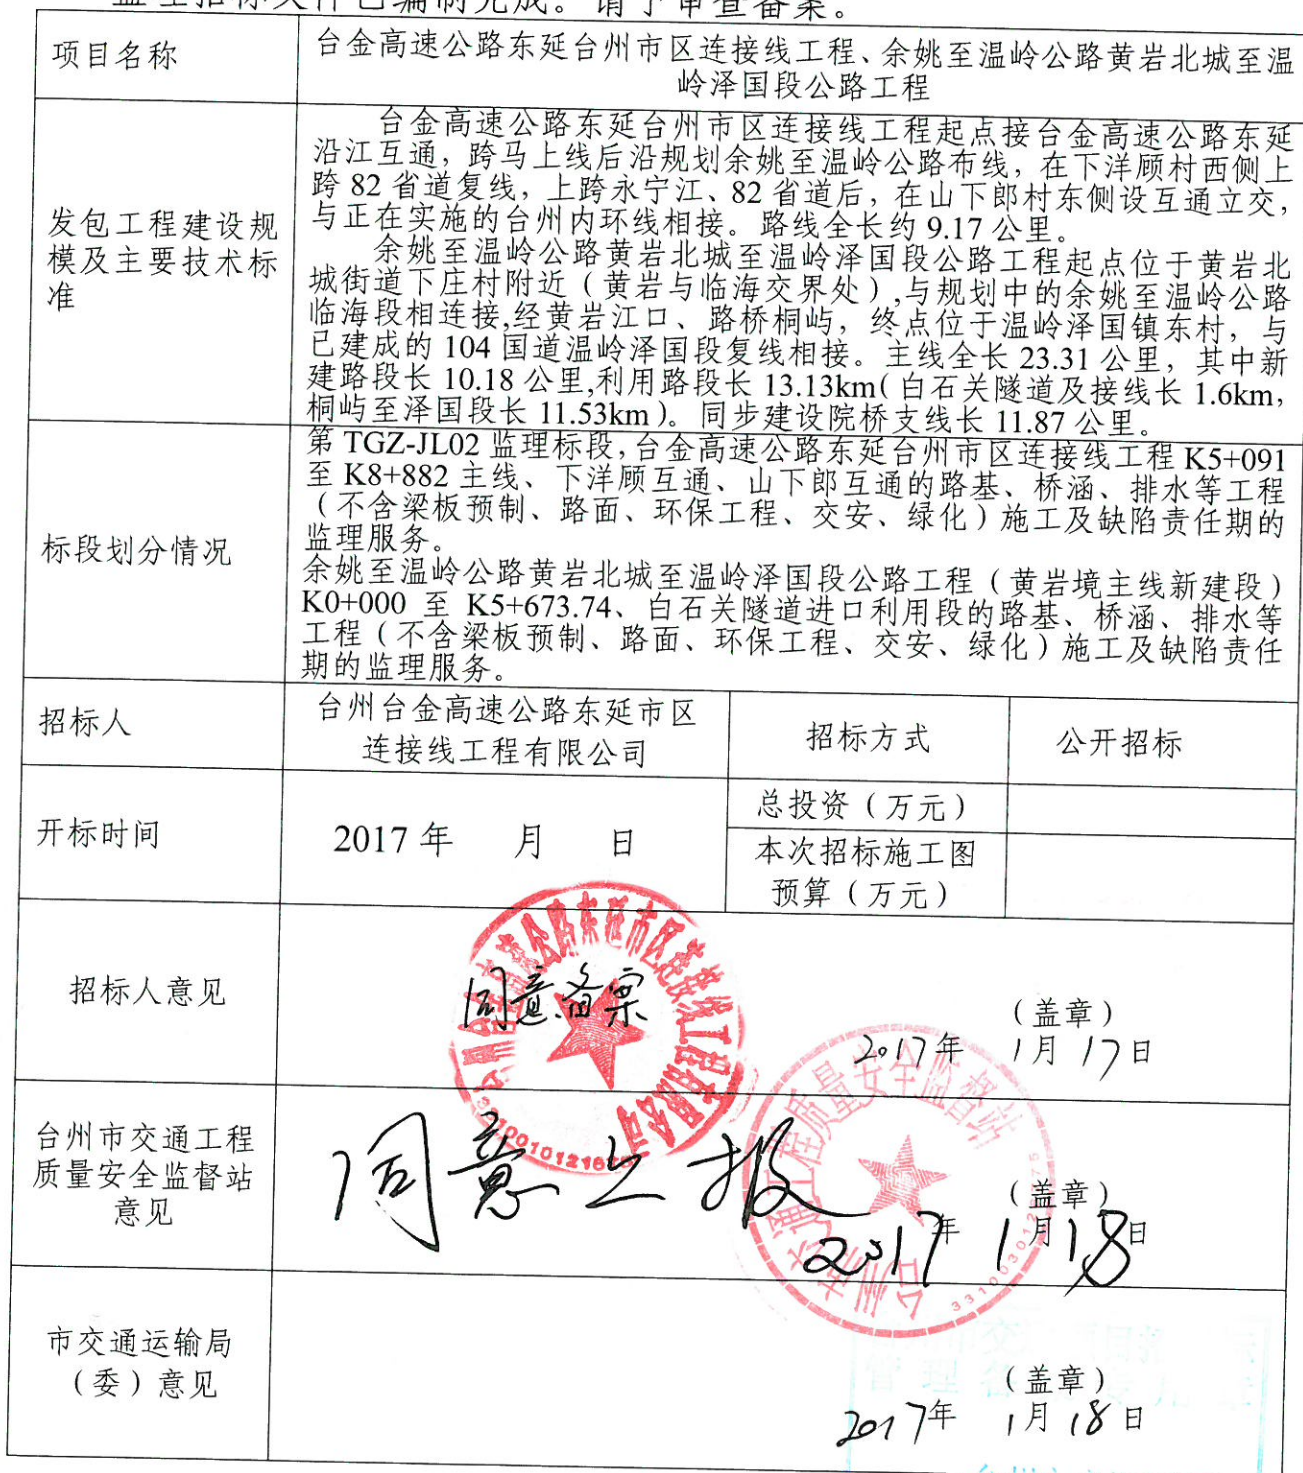 监理招标文件已编制完成。请予审查备案。
项目名称
台金高速公路东延台州市区连接线工程、余姚至温岭公路黄岩北城至温
岭泽国段公路工程
发包工程建设规
模及主要技术标
准
台金高速公路东延台州市区连接线工程起点接台金高速公路东延
沿江互通，跨马上线后沿规划余姚至温岭公路布线，在下洋顾村西侧上
跨 82 省道复线，上跨永宁江、82 省道后，在山下郎村东侧设互通立交，
与正在实施的台州内环线相接。路线全长约 9.17 公里。
余姚至温岭公路黄岩北城至温岭泽国段公路工程起点位于黄岩北
城街道下庄村附近（黄岩与临海交界处）,与规划中的余姚至温岭公路
临海段相连接,经黄岩江口、路桥桐屿，终点位于温岭泽国镇东村，与
已建成的 104 国道温岭泽国段复线相接。主线全长 23.31 公里，其中新
建路段长 10.18 公里,利用路段长 13.13km（白石关隧道及接线长 1.6km，
桐屿至泽国段长 11.53km）。同步建设院桥支线长 11.87 公里。
标段划分情况
第 TGZ-JL02 监理标段，台金高速公路东延台州市区连接线工程 K5+091
至 K8+882 主线、下洋顾互通、山下郎互通的路基、桥涵、排水等工程
（不含梁板预制、路面、环保工程、交安、绿化）施工及缺陷责任期的
监理服务。
余姚至温岭公路黄岩北城至温岭泽国段公路工程（黄岩境主线新建段）
K0+000 至 K5+673.74、白石关隧道进口利用段的路基、桥涵、排水等
工程（不含梁板预制、路面、环保工程、交安、绿化）施工及缺陷责任
期的监理服务。
招标人
台州台金高速公路东延市区
连接线工程有限公司
招标方式
公开招标
开标时间
2017 年 月 日
总投资（万元）
本次招标施工图
预算（万元）
招标人意见
同意备案
台州台金高速公路东延市区连接线工程有限公司
（盖章）
2017年 1月 17日
台州市交通工程
质量安全监督站
意见
同意上报
台州市交通工程质量安全监督站
（盖章）
2017年 1月18日
市交通运输局
（委）意见
（盖章）
2017年 1月18日